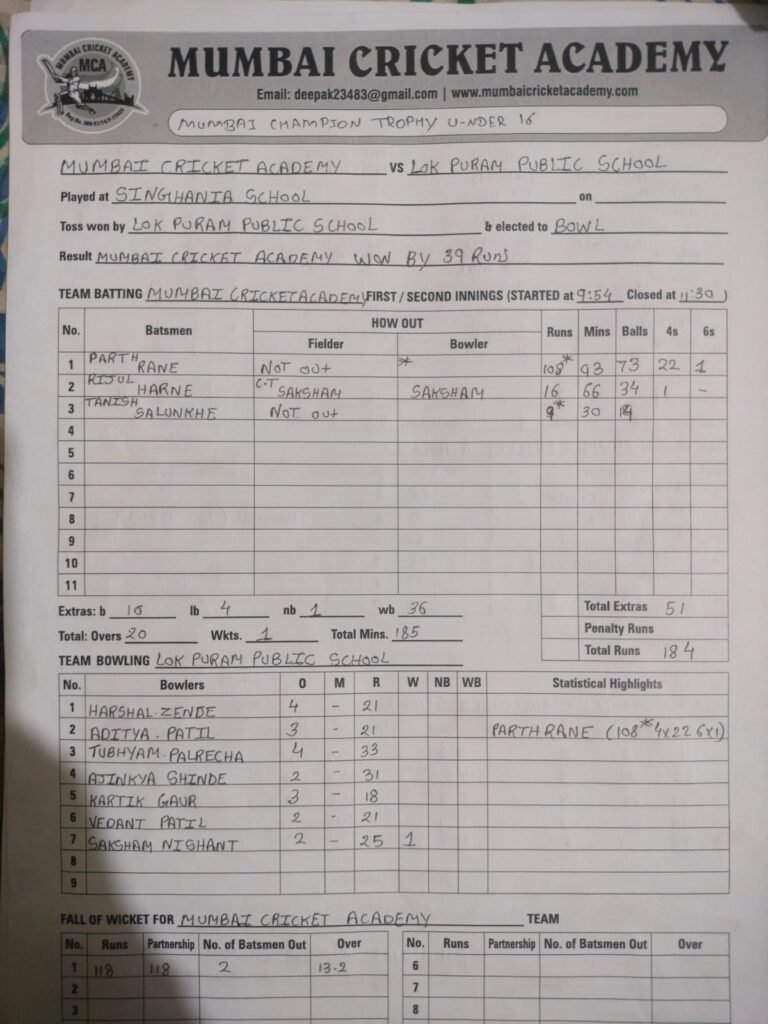 MUMBAI CRICKET ACADEMY
MCA
MUMBAI CRICKET ACADEMY
Email: deepak23483@gmail.com | www.mumbaicricketacademy.com
MUMBAI CHAMPION TROPHY U-NDER 16
MUMBAI CRICKET ACADEMY VS LOK PURAM PUBLIC SCHOOL
Played at SINGHANIA SCHOOL on
Toss won by LOK PURAM PUBLIC SCHOOL & elected to BOWL
Result MUMBAI CRICKET ACADEMY WON BY 39 RUNS
TEAM BATTING MUMBAI CRICKET ACADEMY FIRST / SECOND INNINGS (STARTED at 9:54 Closed at 11:30 )
No. Batsmen HOW OUT Runs Mins Balls 4s 6s
Fielder Bowler
1 PARTH RANE NOT OUT * 108* 93 73 22 1
2 RIJUL HARNE C.T SAKSHAM SAKSHAM 16 66 34 1 -
3 TANISH SALUNKHE NOT OUT 9* 30
4
5
6
7
8
9
10
11
Extras: b 10 lb 4 nb 1 wb 36 Total Extras 51
Total: Overs 20 Wkts. 1 Total Mins. 185 Penalty Runs
Total Runs 184
TEAM BOWLING LOK PURAM PUBLIC SCHOOL
No. Bowlers O M R W NB WB Statistical Highlights
1 HARSHAL.ZENDE 4 - 21
2 ADITYA.PATIL 3 - 21 PARTH RANE (108* 4x22 6x1)
3 TUBHYAM.PALRECHA 4 - 33
4 AJINKYA SHINDE 2 - 31
5 KARTIK GAUR 3 - 18
6 VEDANT PATIL 2 - 21
7 SAKSHAM NISHANT 2 - 25 1
8
9
FALL OF WICKET FOR MUMBAI CRICKET ACADEMY TEAM
No. Runs Partnership No. of Batsmen Out Over No. Runs Partnership No. of Batsmen Out Over
1 118 118 2 13.2 6
2 7
3 8